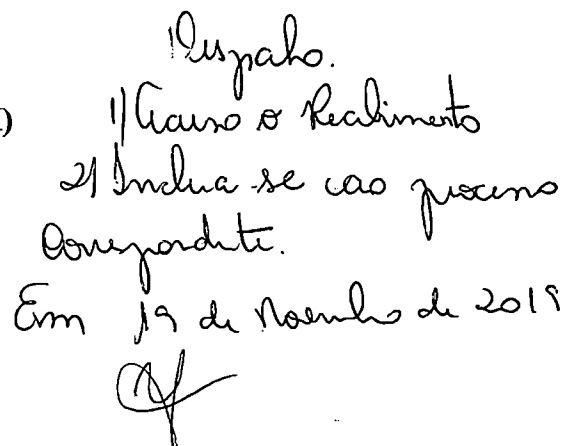 Despacho.
1) Acuso o Recebimento
2) Inclua-se ao processo
Correspondente.
Em 19 de Novembro de 2019